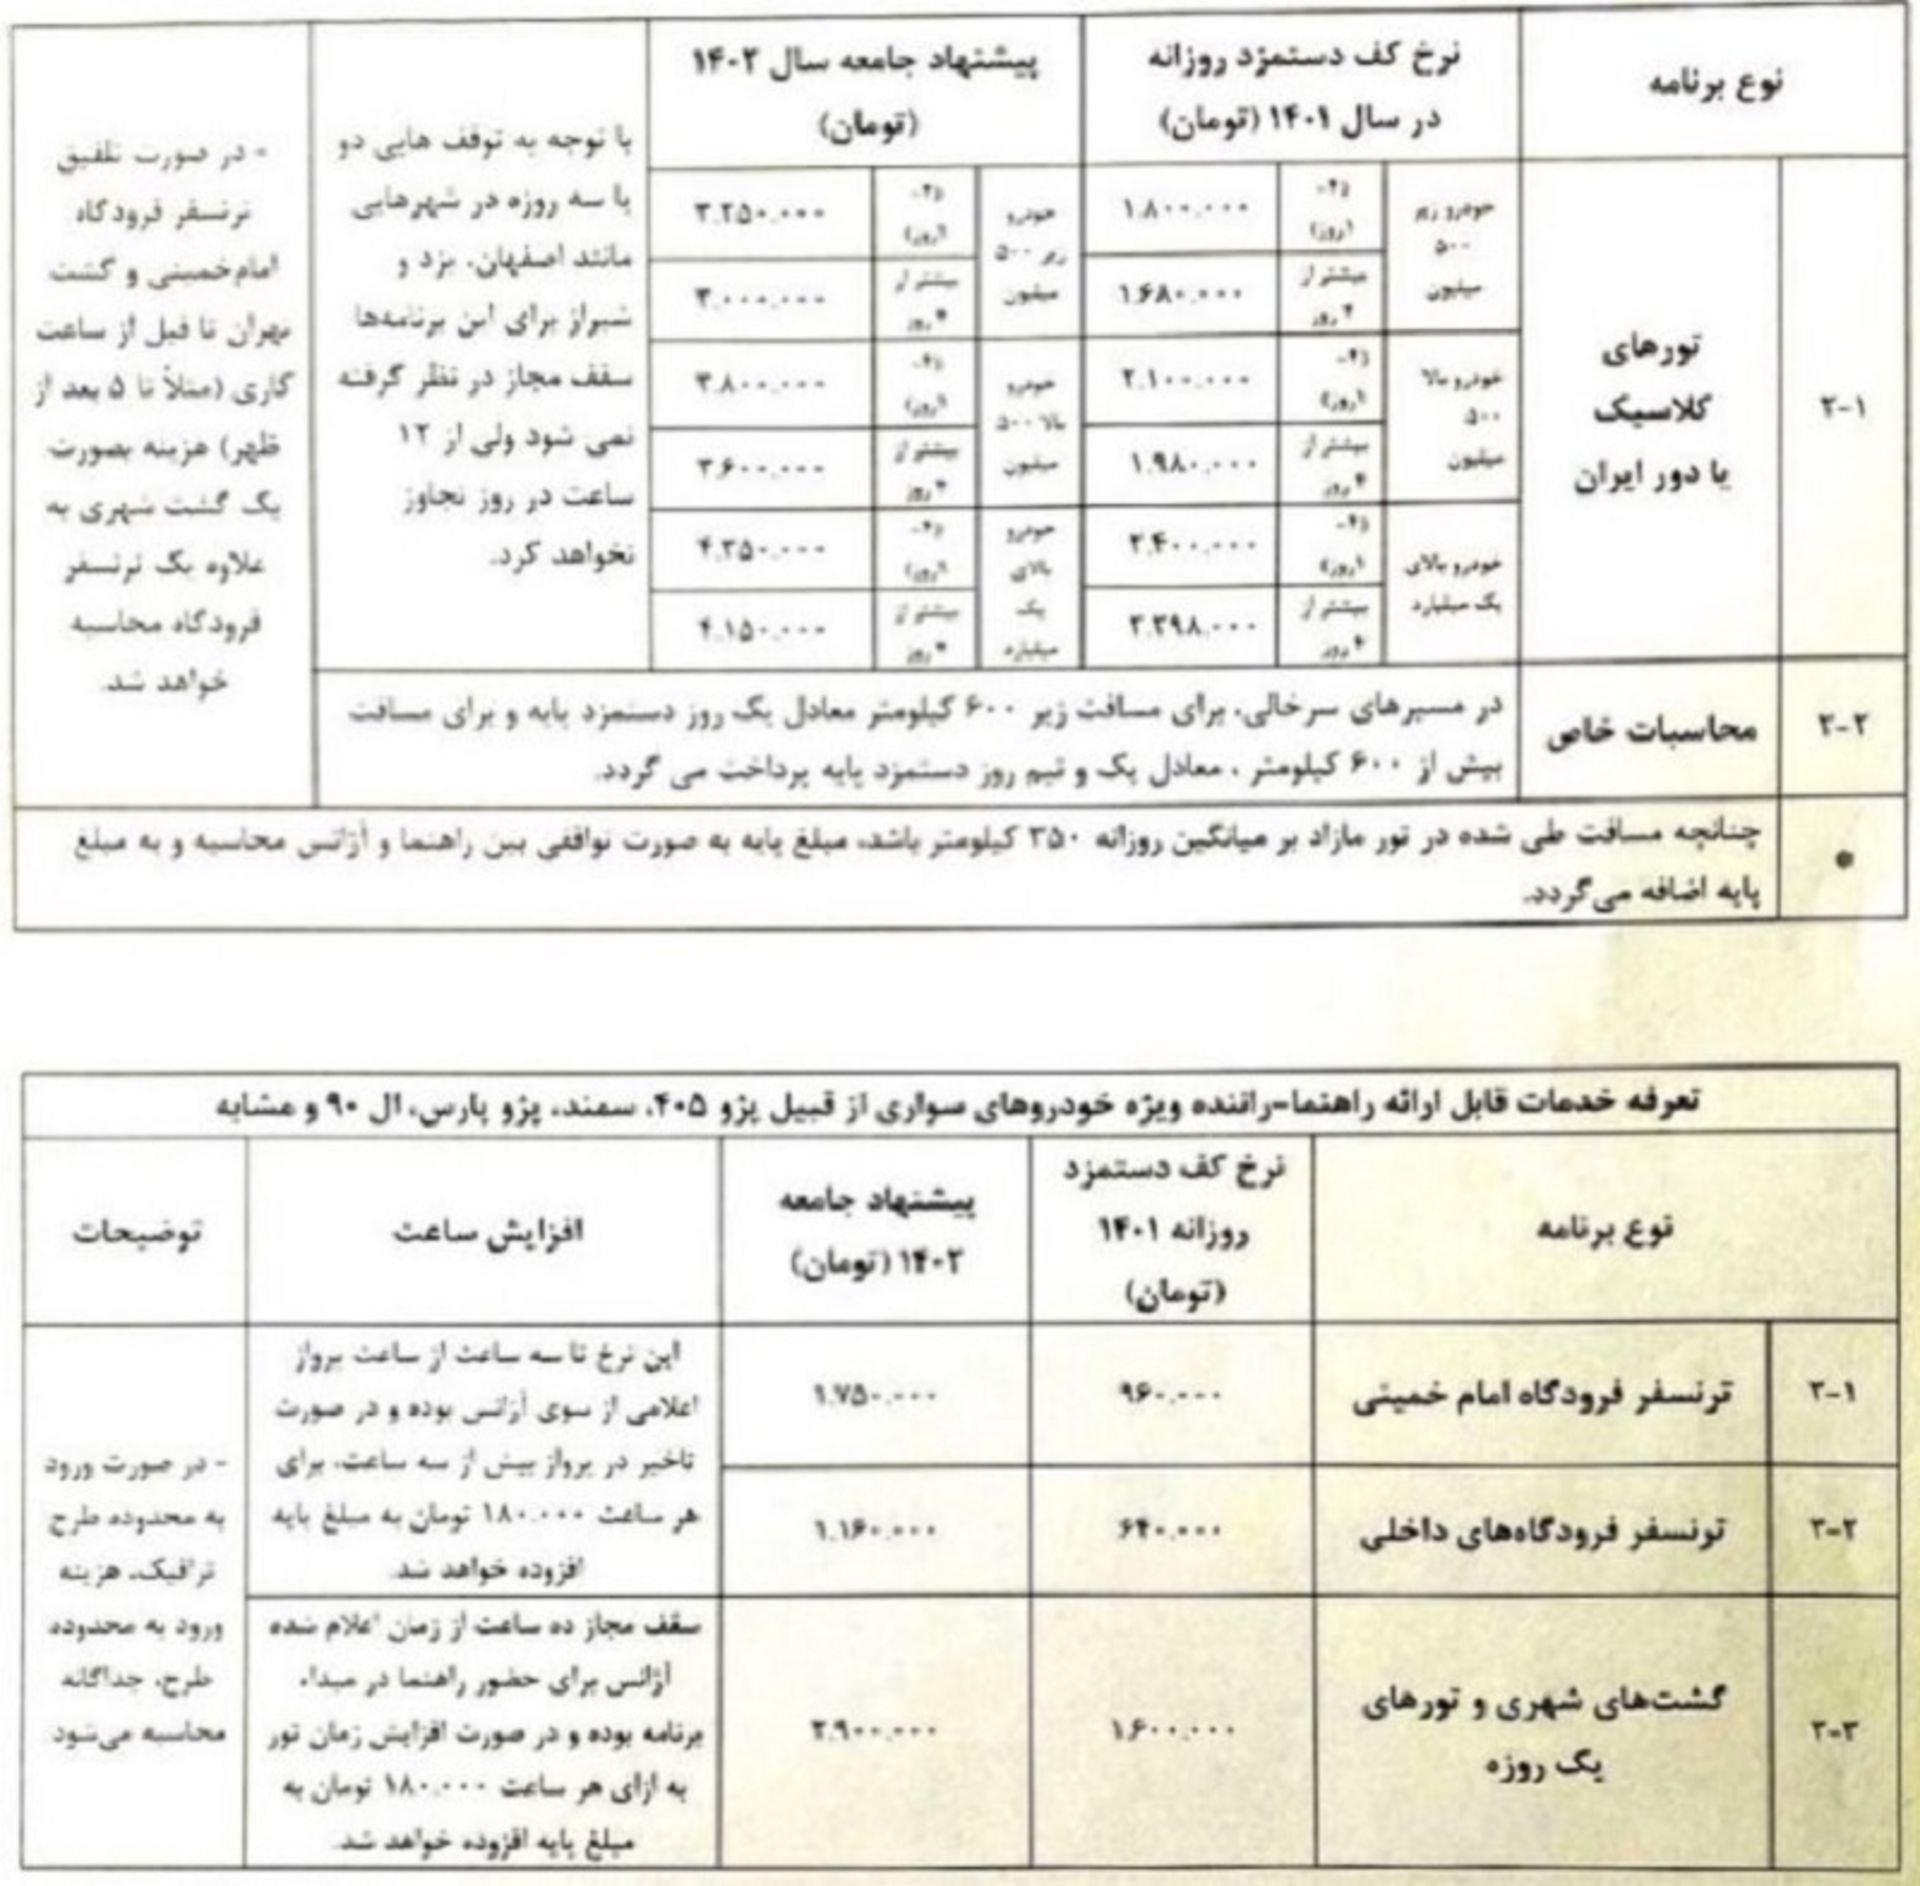 نوع برنامه
نرخ کف دستمزد روزانه
در سال ۱۴۰۱ (تومان)
پیشنهاد جامعه سال ۱۴۰۲
(تومان)
۲-۱
تورهای
کلاسیک
یا دور ایران
خودرو زیر
۵۰۰
میلیون
۱.۸۰۰.۰۰۰
بیشتر از
۴ روز
۱.۶۸۰.۰۰۰
خودرو بالا
۵۰۰
میلیون
۲.۱۰۰.۰۰۰
بیشتر از
۴ روز
۱.۹۸۰.۰۰۰
خودرو بالای
یک میلیارد
۲.۴۰۰.۰۰۰
بیشتر از
۴ روز
خودرو
زیر ۵۰۰
میلیون
۳.۲۵۰.۰۰۰
بیشتر از
۴ روز
۳.۰۰۰.۰۰۰
خودرو
بالا ۵۰۰
میلیون
۳.۸۰۰.۰۰۰
بیشتر از
۴ روز
۳.۶۰۰.۰۰۰
خودرو
بالای
یک
میلیارد
۴.۳۵۰.۰۰۰
بیشتر از
۴ روز
۴.۱۵۰.۰۰۰
با توجه به توقف هایی دو
یا سه روزه در شهرهایی
مانند اصفهان، یزد و
شیراز برای این برنامه‌ها
سقف مجاز در نظر گرفته
نمی شود ولی از ۱۲
ساعت در روز تجاوز
نخواهد کرد.
- در صورت تلفیق
ترنسفر فرودگاه
امام‌خمینی و گشت
تهران تا قبل از ساعت
کاری (مثلاً تا ۵ بعد از
ظهر) هزینه بصورت
یک گشت شهری به
علاوه یک ترنسفر
فرودگاه محاسبه
خواهد شد.
۲-۲
محاسبات خاص
در مسیرهای سرخالی، برای مسافت زیر ۶۰۰ کیلومتر معادل یک روز دستمزد پایه و برای مسافت
بیش از ۶۰۰ کیلومتر ، معادل یک و نیم روز دستمزد پایه پرداخت می گردد.
*
چنانچه مسافت طی شده در تور مازاد بر میانگین روزانه ۳۵۰ کیلومتر باشد، مبلغ پایه به صورت توافقی بین راهنما و آژانس محاسبه و به مبلغ
پایه اضافه می‌گردد.
تعرفه خدمات قابل ارائه راهنما-راننده ویژه خودروهای سواری از قبیل پژو ۴۰۵، سمند، پژو پارس، ال ۹۰ و مشابه
نوع برنامه
نرخ کف دستمزد
روزانه ۱۴۰۱
(تومان)
پیشنهاد جامعه
۱۴۰۲ (تومان)
افزایش ساعت
توضیحات
۳-۱
ترنسفر فرودگاه امام خمینی
۹۶۰.۰۰۰
۱.۷۵۰.۰۰۰
این نرخ تا سه ساعت از ساعت پرواز
اعلامی از سوی آژانس بوده و در صورت
تاخیر در پرواز بیش از سه ساعت، برای
هر ساعت ۱۸۰.۰۰۰ تومان به مبلغ پایه
افزوده خواهد شد.
۳-۲
ترنسفر فرودگاه‌های داخلی
۶۴۰.۰۰۰
۱.۱۶۰.۰۰۰
۳-۳
گشت‌های شهری و تورهای
یک روزه
۱.۶۰۰.۰۰۰
۲.۹۰۰.۰۰۰
سقف مجاز ده ساعت از زمان اعلام شده
آژانس برای حضور راهنما در مبداء
برنامه بوده و در صورت افزایش زمان تور
به ازای هر ساعت ۱۸۰.۰۰۰ تومان به
مبلغ پایه افزوده خواهد شد.
- در صورت ورود
به محدوده طرح
ترافیک، هزینه
ورود به محدوده
طرح، جداگانه
محاسبه می‌شود